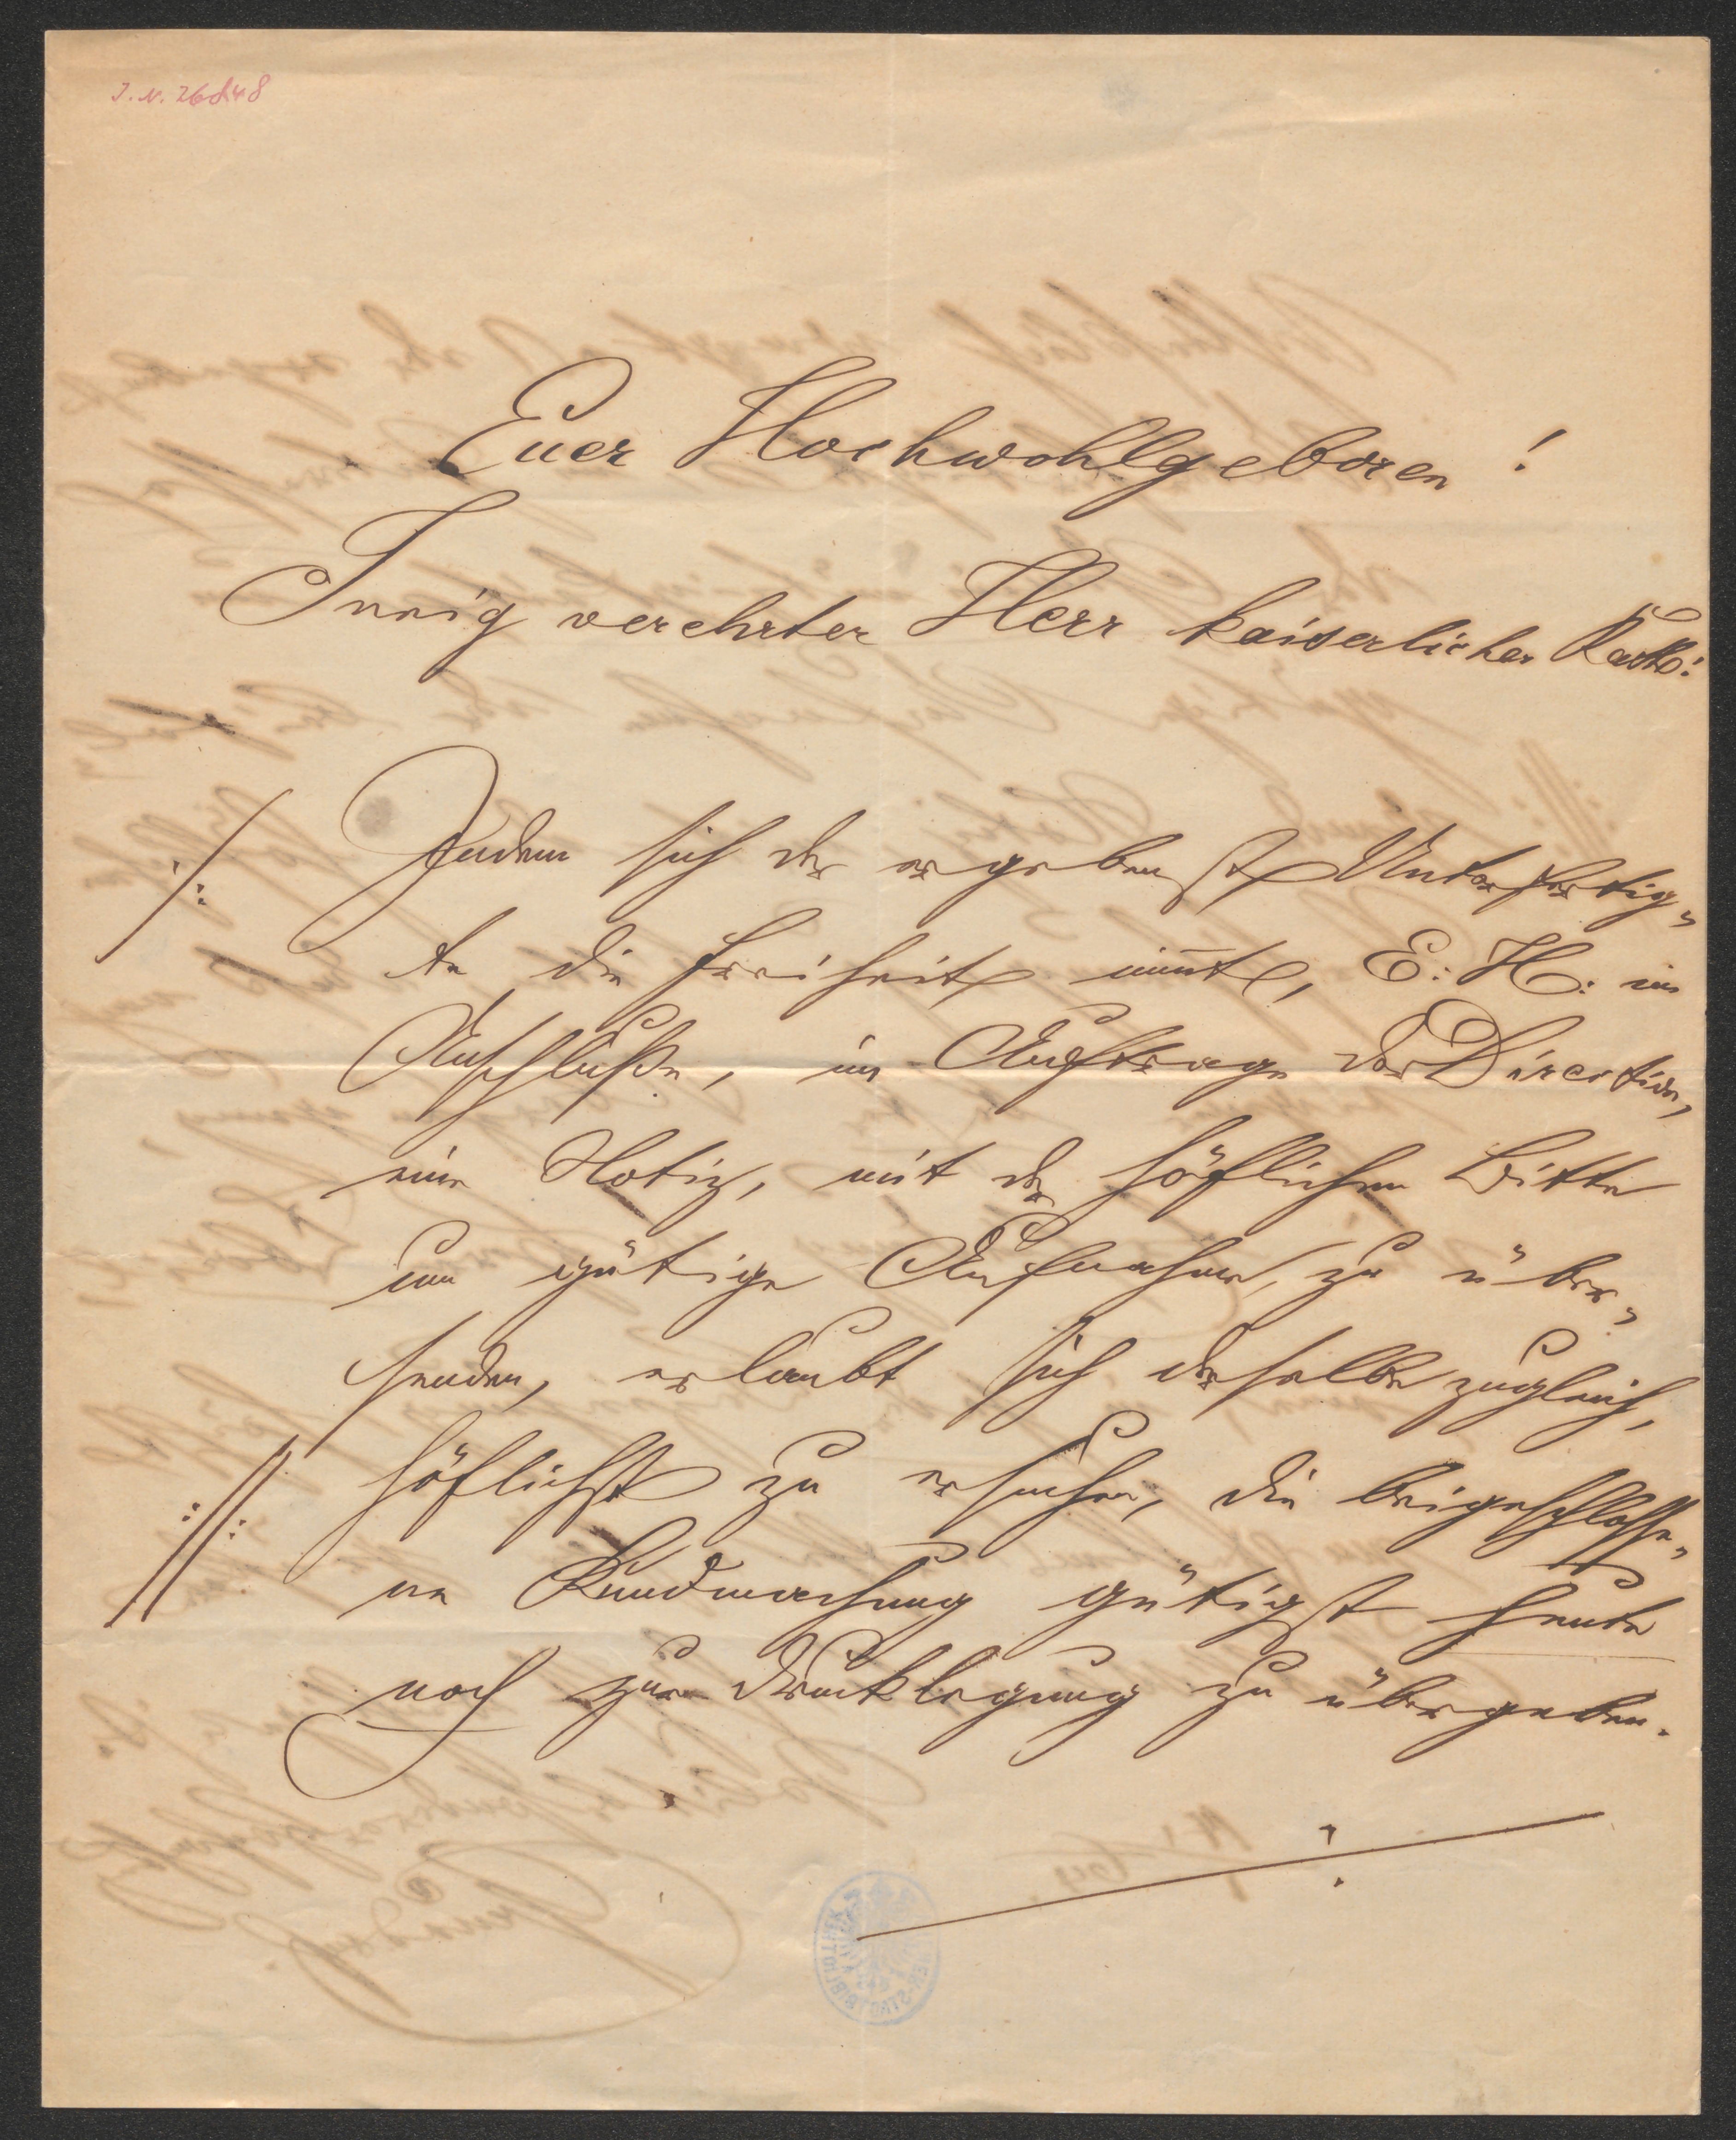 I. N. 26848
Euer Hochwohlgeboren!
Innig verehrter Herr kaiserlicher Rath!
./: Indem sich der ergebenst Unterfertig„
te die Freiheit nim̄t, E: H: im
Anschluße, im Auftrage der Direction,
eine Notiz, mit der höflichen Bitte
um gütige Aufnahme, zu über„
senden, erlaubt sich derselbe zugleich,
:||: höflichst zu ersuchen, die beigeschlosse„
ne Kundmachung gütigst heute
noch zur Drucklegung zu übergeben.